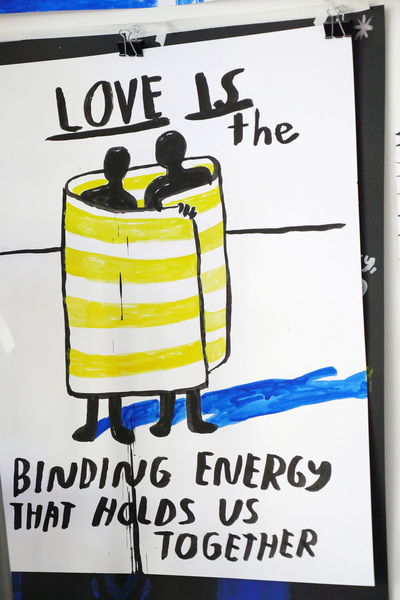 LOVE IS
the
BINDING ENERGY
THAT HOLDS US
TOGETHER